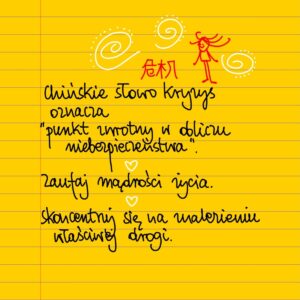 危机
chińskie słowo kryzys
oznacza
"punkt zwrotny w obliczu
niebezpieczeństwa".
zaufaj mądrości życia.
skoncentruj się na znalezieniu
właściwej drogi.